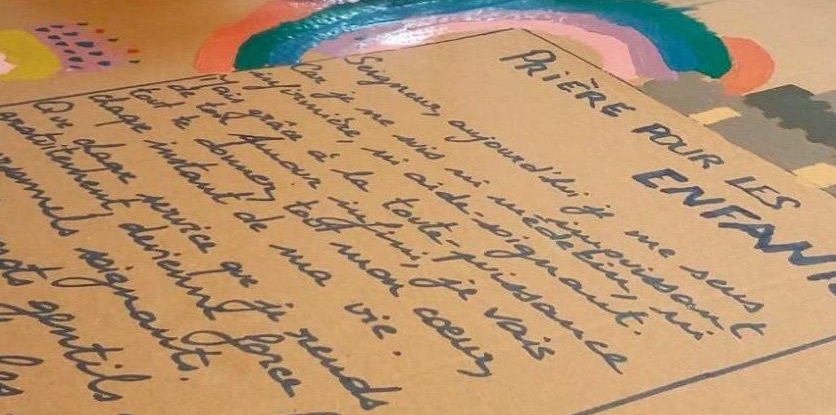 PRIÈRE POUR LES
ENFANT
Seigneur, aujourd'hui, je me sens impuissant
Car je ne suis ni médecin, ni
infirmière, ni aide-soignant.
Mais grâce à la toute-puissance
de ton Amour infini, je vais
tout te donner, tout mon cœur,
chaque instant de ma vie.
Que chaque service que je rends
gratuitement devienne force
soignants.
mots gentils
les